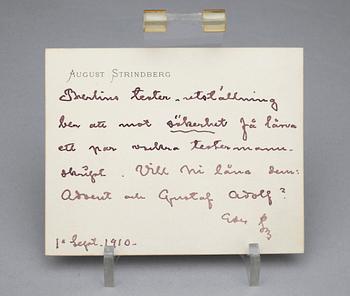 AUGUST STRINDBERG
Berlins teater-utställning
ber att mot säkerhet få låna
ett par vackra teatermanu-
skript. Vill Ni låna dem:
Advent och Gustaf Adolf?
Eder
1a Sept. 1910.